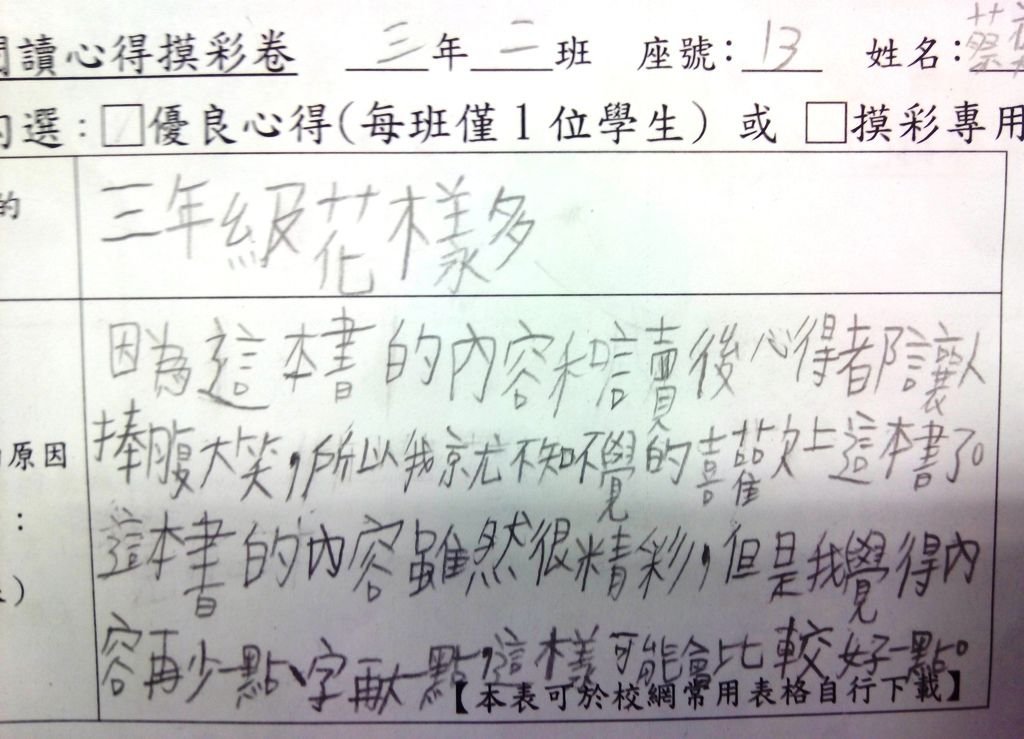 閱讀心得摸彩卷 三年二班 座號：13 姓名：蔡
勾選：□優良心得(每班僅1位學生) 或 □摸彩專用
的
三年級花樣多
因為這本書的內容和讀後心得都讓人
捧腹大笑，所以我就不知不覺的喜歡上這本書了。
原因
：
這本書的內容雖然很精彩，但是我覺得內
）
容再少一點、字再大一點，這樣可能會比較好一點。
【本表可於校網常用表格自行下載】